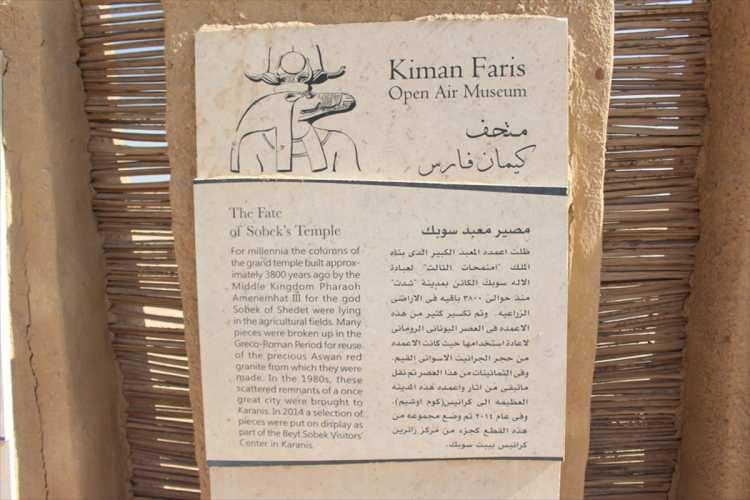 Kiman Faris
Open Air Museum
متحف
كيمان فارس
The Fate
of Sobek's Temple
For millennia the columns of
the grand temple built approx-
imately 3800 years ago by the
Middle Kingdom Pharaoh
Amenemhat III for the god
Sobek of Shedet were lying
in the agricultural fields. Many
pieces were broken up in the
Greco-Roman Period for reuse
of the precious Aswan red
granite from which they were
made. In the 1980s, these
scattered remnants of a once
great city were brought to
Karanis. In 2014 a selection of
pieces were put on display as
part of the Beyt Sobek Visitors'
Center in Karanis.
مصير معبد سوبك
ظلت اعمده المعبد الكبير الذى بناه
الملك "امنمحات الثالث" لعبادة
الاله سوبك الكائن بمدينة "شدت"
منذ حوالى ٣٨٠٠ باقيه فى الاراضى
الزراعيه. وتم تكسير كثير من هذه
الاعمده فى العصر اليونانى الرومانى
لاعادة استخدامها حيث كانت الاعمده
من حجر الجرانيت الاسوانى القيم.
وفى الثمانينات من هذا العصر تم نقل
ماتبقى من اثار واعمده هذه المدينه
العظيمه الى كرانيس(كوم اوشيم).
وفى عام ٢٠١٤ تم وضع مجموعه من
هذه القطع كجزء من مركز زائرين
كرانيس ببيت سوبك.